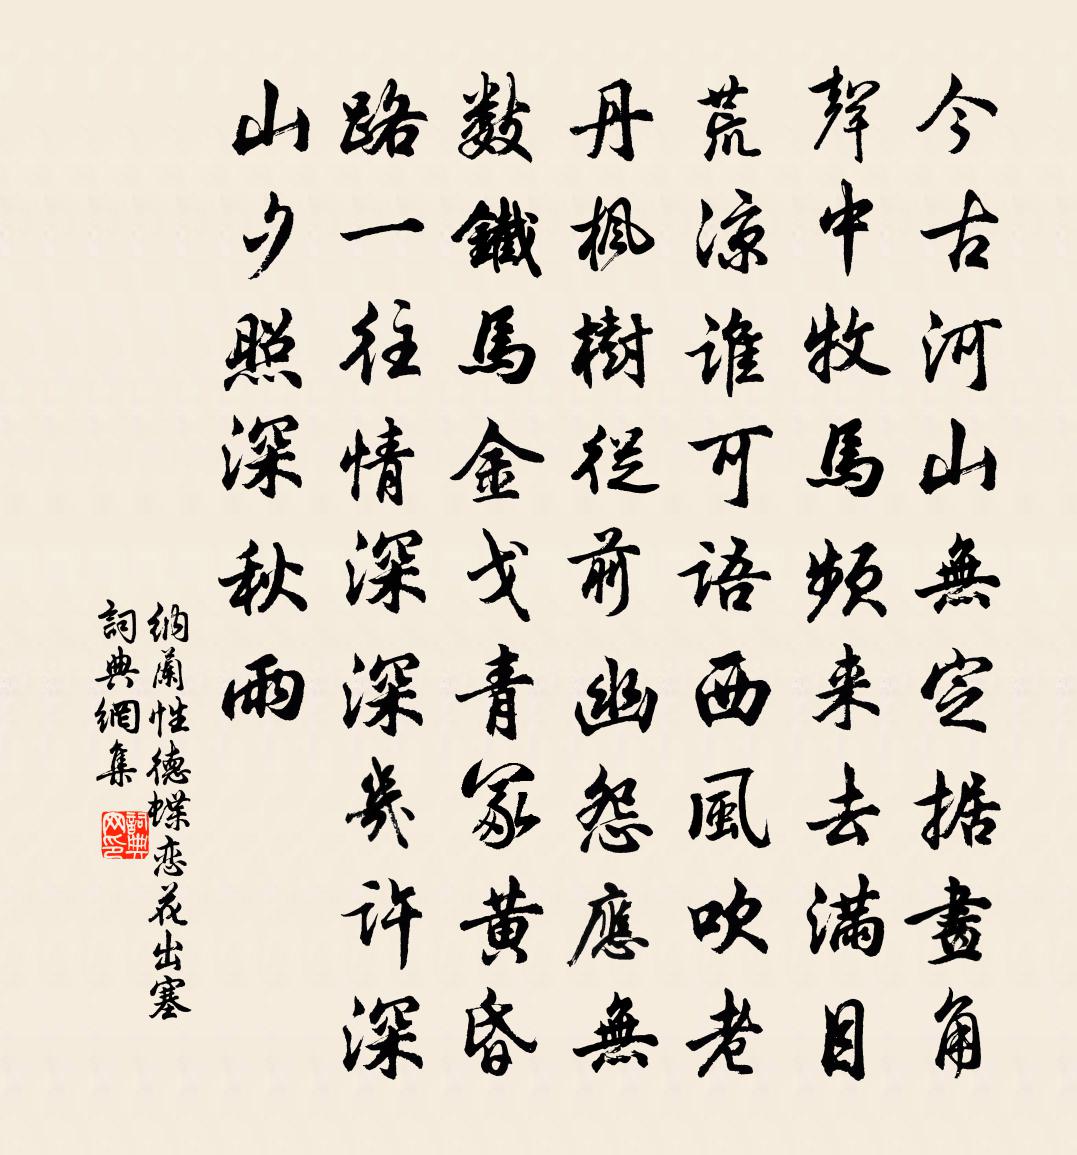 今古河山無定据畫角
聲中牧馬頻来去滿目
荒涼誰可語西風吹老
丹楓樹從前幽怨應無
數鐵馬金戈青冢黃昏
路一往情深深幾許深
山夕照深秋雨
納蘭性德蝶恋花出塞
詞典網集
詞典网印